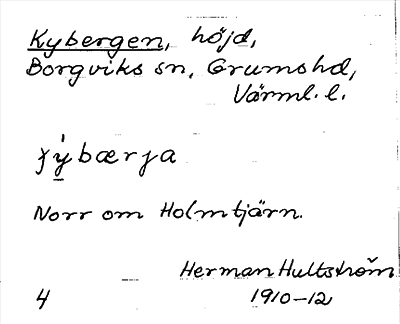 Kybergen, höjd,
Borgviks sn, Grums hd,
Värml. l.
ɟỳ̱bærɟa
Norr om Holmtjärn.
Herman Hultström
4 1910-12